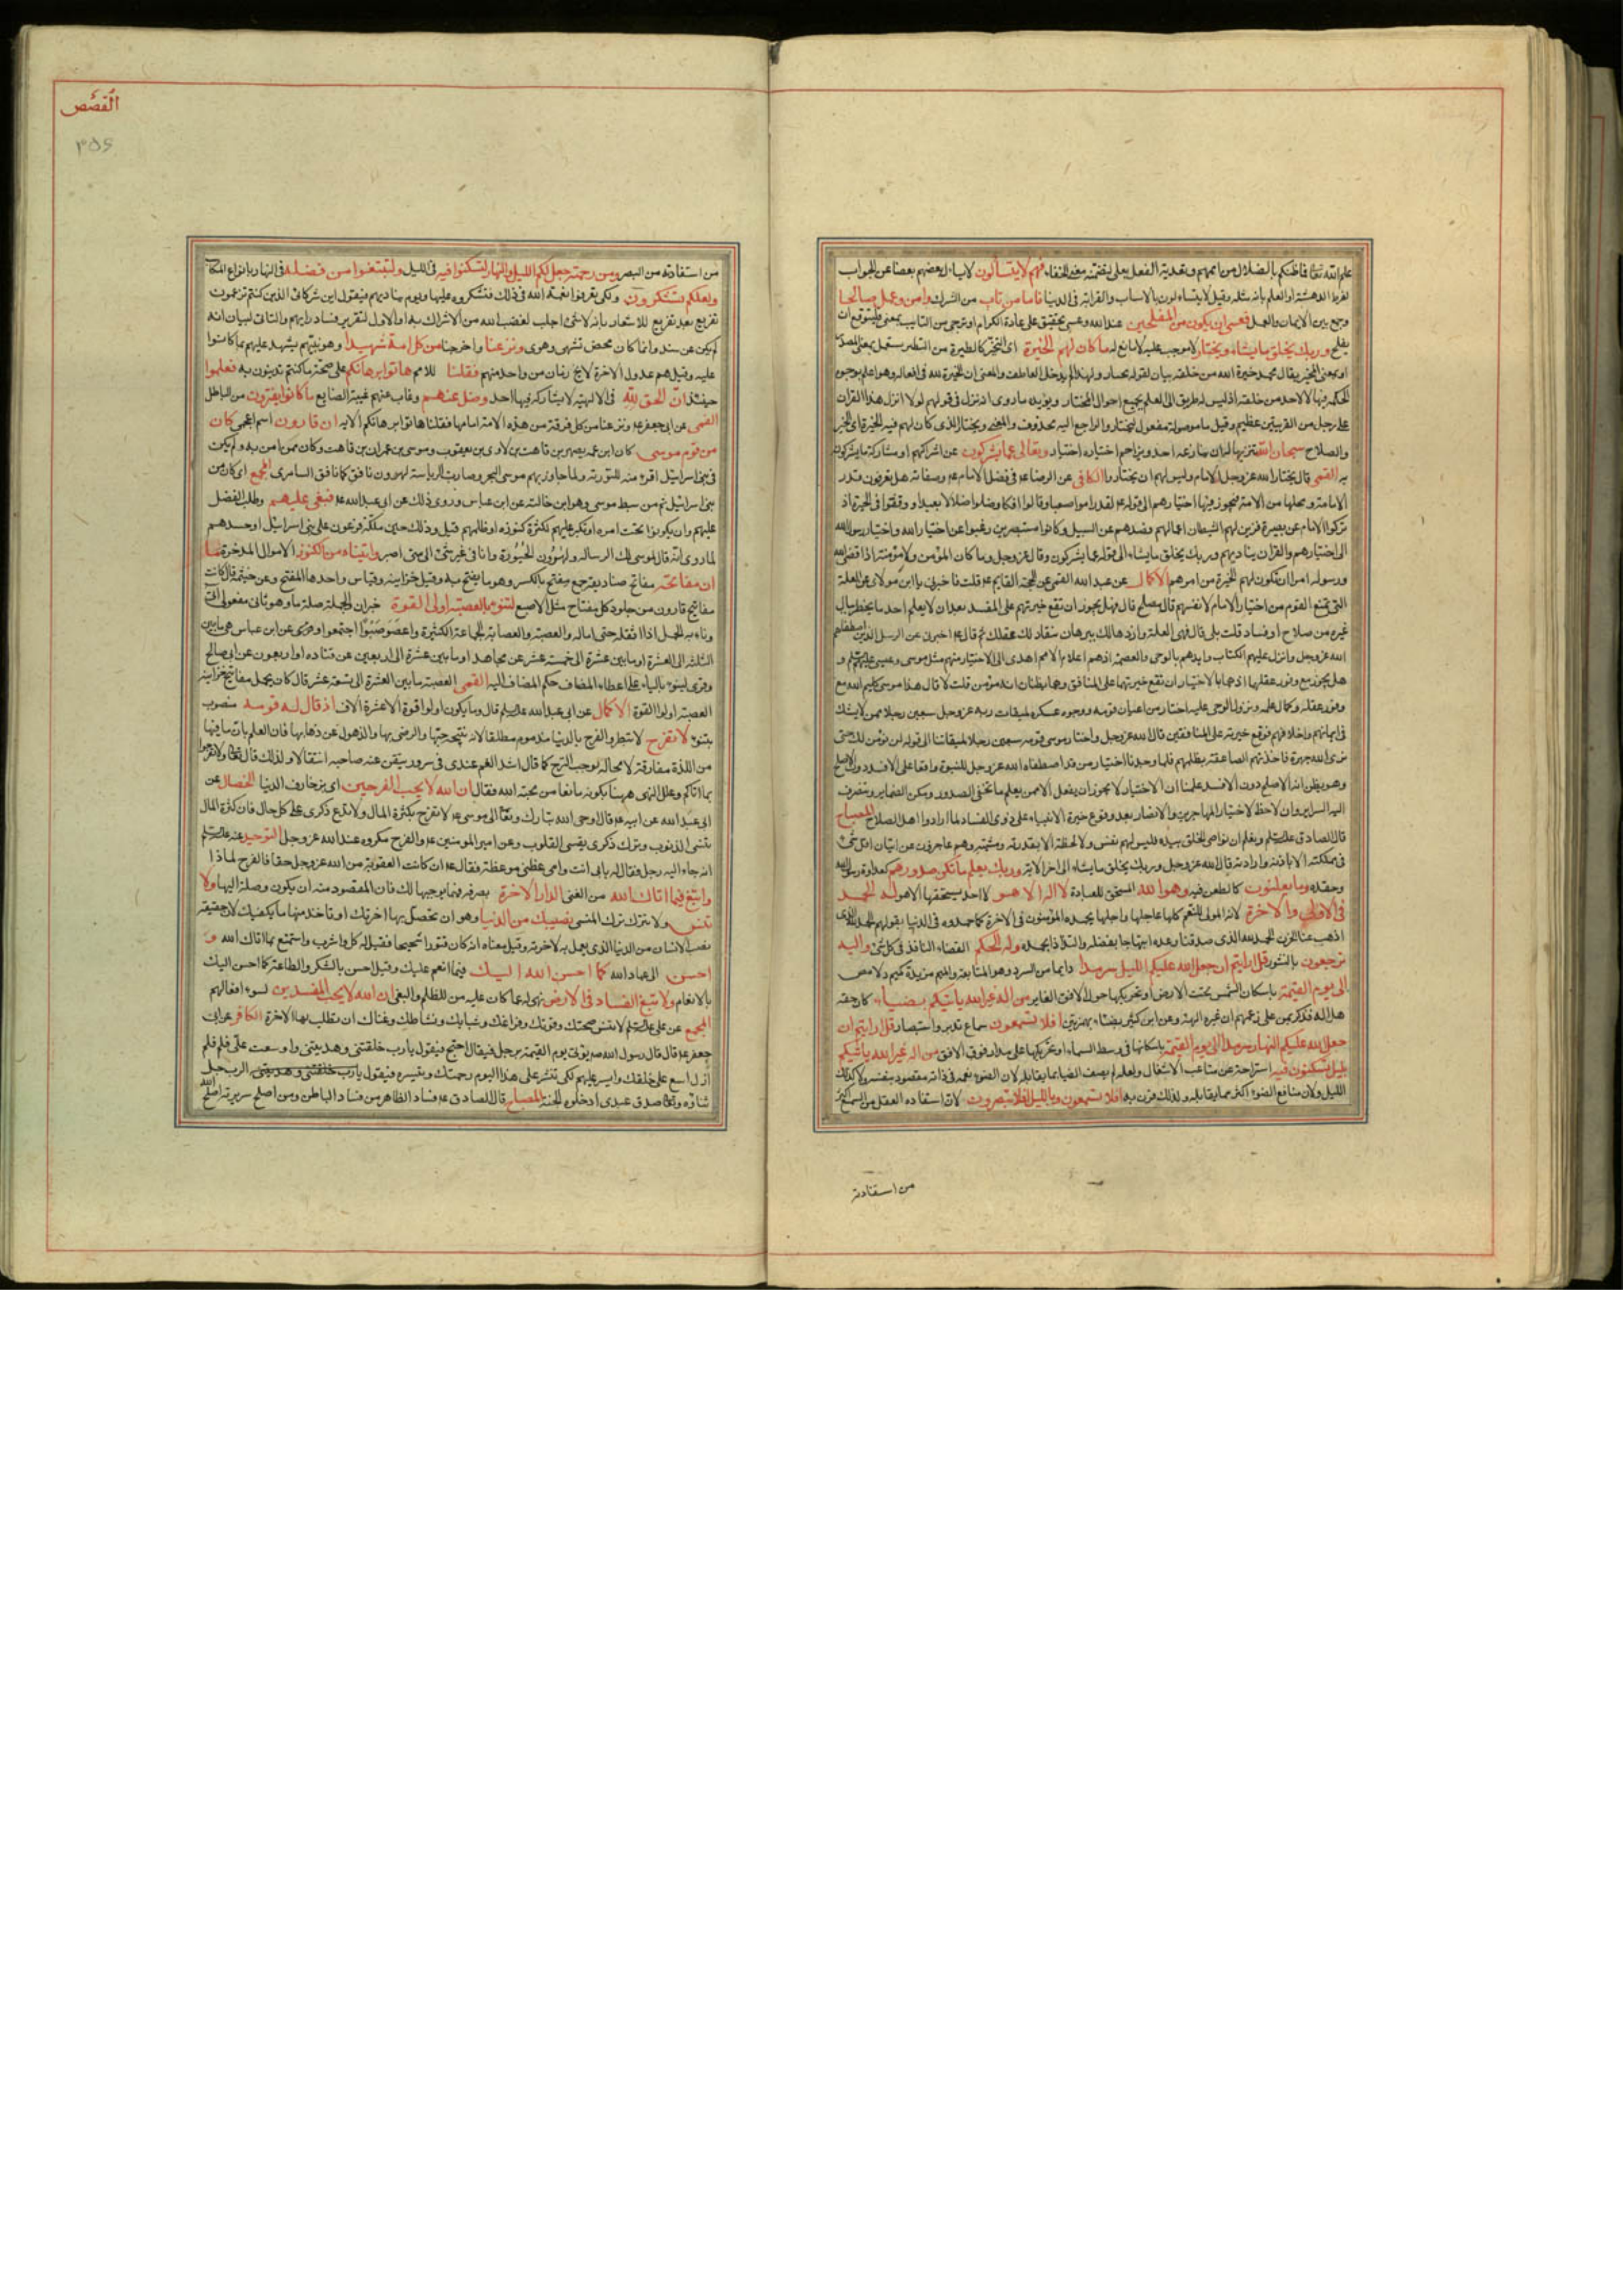 علم الله تعالى فاظنكم بالضلال من اممهم وتعدية الفعل بعلى لتضمنه معنى الخفاء فهم لا يتسألون لا يسأل بعضهم بعضا عن الجواب
لفرط الدهشة او العلم بانه مثله وقيل لا يتساءلون بالانساب والقرابة فى الدنيا فاما من تاب من الشرك وامن وعمل صالحا
وجمع بين الايمان والعمل فعسى ان يكون من المفلحين عند الله وعسى تحقيق على عادة الكرام او ترجى من التايب بمعنى فليتوقع ان
يفلح وربك يخلق ما يشاء ويختار لا موجب عليه لا مانع له ما كان لهم الخيرة اى التخير كالطيرة من التطير يستعمل بمعنى المصدر
عليه رجل من القريتين عظيم وقيل ما موصولة مفعول ليختار والراجع اليه محذوف والمعنى ويختار الذى كان لهم فيه الخيرة اى الخير
والصلاح سبحان الله تنزيها له ان ينازعه احد ويزاحم اختياره اختيار وتعالى عما يشركون عن اشراكهم او مشاركة ما يشركون
به القمى قال يختار الله عز وجل الامام وليس لهم ان يختاروا الكافى عن الرضا ع فى فضل الامام ع وصفاته هل تعرفون قدر
الامامة ومحلها من الامة فيجوز فيها اختيارهم الى قوله ع لقد راموا صعبا وقالوا افكا وضلوا ضلالا بعيدا ووقعوا فى الحيرة اذ
تركوا الامام عن بصيرة فزين لهم الشيطان اعمالهم فصدهم عن السبيل وكانوا مستبصرين رغبوا عن اختيار الله واختيار رسول الله
الى اختيارهم والقران يناديهم وربك يخلق ما يشاء الى قوله عما يشركون وقال عز وجل وما كان لمؤمن ولا مؤمنة اذا قضى الله
ورسوله امرا ان تكون لهم الخيرة من امرهم الاكمال عن عبد الله القمى عن الحجة القايم ع قلت فاخبرنى يا ابن مولاى عن العلة
التى تمنع القوم من اختيار الامام لانفسهم قال مصلح او مفسد قال فهل يجوز ان تقع خيرتهم على المفسد بعد ان لا يعلم احد ما يخطر ببال
غيره من صلاح او فساد قلت بلى قال فهى العلة واوردها لك ببرهان ينقاد لك عقلك ثم قال ع اخبرنى عن الرسل الذين اصطفاهم
الله عز وجل وانزل عليهم الكتاب وايدهم بالوحى والعصمة اذهم اعلام الامم اهدى الى الاختيار منهم مثل موسى وعيسى
هل يجوز مع وفور عقلهما اذ هما بالاختيار ان تقع خيرتهما على المنافق وهما يظنان انه مؤمن قلت لا قال هذا موسى كليم الله مع
وفور عقله وكمال علمه ونزول الوحى عليه اختار من اعيان قومه ووجوه عسكره لميقات ربه عز وجل سبعين رجلا ممن لا يشك
فى ايمانهم واخلاصهم فوقع خيرته على المنافقين قال الله عز وجل واختار موسى قومه سبعين رجلا لميقاتنا الى قوله لن نؤمن لك حتى
نرى الله جهرة فاخذتهم الصاعقة بظلمهم فلما وجدنا اختيار من قد اصطفاه الله عز وجل للنبوة واقعا على الافسد دون الاصلح
وهو يظن انه الاصلح دون الافسد علمنا ان الاختيار لا يجوز ان يفعل الا ممن يعلم ما تخفى الصدور وتكن الضماير وتنصرف
اليه السراير وان لا خطر لاختيار المهاجرين والانصار بعد وقوع خيرة الانبياء على ذوى الفساد لما ارادوا اهل الصلاح المصباح
وحقده وما يعلنون كالطعن فيه وهو الله المستحق للعبادة لا اله الا هو لا احد يستحقها الا هو له الحمد
فى الاولى والاخرة لانه المولى للنعم كلها عاجلها واجلها يحمده المؤمنون فى الاخرة كما حمدوه فى الدنيا بقولهم الحمد لله الذى
اذهب عنا الحزن الحمد لله الذى صدقنا وعده ابتهاجا بفضله والتذاذا بحمده وله الحكم القضاء النافذ فى كل شئ واليه
ترجعون بالنشور قل ارايتم ان جعل الله عليكم الليل سرمدا دايما من السرد وهو المتابعة والميم مزيدة كميم دلامص
الى يوم القيمة باسكان الشمس تحت الارض او تحريكها حول الافق الغاير من اله غير الله ياتيكم بضياء كان حقه
هل اله فذكر بمن على زعمهم ان غيره الهة وعن ابن كثير بضئاء بهمزتين افلا تسمعون سماع تدبر واستبصار قل ارايتم ان
جعل الله عليكم النهار سرمدا الى يوم القيمة باسكانها فى وسط السماء او تحريكها على مدار فوق الافق من اله غير الله ياتيكم
بليل تسكنون فيه استراحة عن متاعب الاشغال ولعله لم يصف الضياء بما يقابله لان الضوء نعمة فى ذاته مقصود بنفسه ولا كذلك
الليل ولان منافع الضوء اكثر مما يقابله ولذلك قرن به افلا تسمعون وبالليل افلا تبصرون لان استفاده العقل من السمع اكثر
من استفادته
القصص
٣٥٤
من استفادته من البصر ومن رحمته جعل لكم الليل والنهار لتسكنوا فيه فى الليل ولتبتغوا من فضله فى النهار بانواع المكاسب
ولعلكم تشكرون ولكى تعرفوا نعمة الله فى ذلك فتشكروه عليها ويوم يناديهم فيقول اين شركائى الذين كنتم تزعمون
تقريع بعد تقريع للاشعار بانه لا شئ اجلب لغضب الله من الاشراك به او الاول لتقرير فساد رايهم والثانى لبيان انه
لم يكن عن سند وانما كان محض تشهى وهوى ونزعنا واخرجنا من كل امة شهيدا وهو نبيهم يشهد عليهم بما كانوا
عليه وقيل هم عدول الاخرة لا يخ زمان من واحد منهم فقلنا للامم هاتوا برهانكم على صحة ما كنتم تدينون به فعلموا
حينئذ ان الحق لله فى الالهية لا يشاركه فيها احد وضل عنهم وغاب عنهم غيبة الضايع ما كانوا يفترون من الباطل
القمى عن ابى جعفر ع ونزعنا من كل فرقة من هذه الامة امامها فقلنا هاتوا برهانكم الاية ان قارون اسم اعجمى كان
من قوم موسى كان ابن عمه يصهر بن قاهث بن لاوى بن يعقوب وموسى بن عمران بن قاهث وكان ممن امن به ولم يكن
فى بنى اسرائيل اقرء منه للتورية ولما جاوز بهم موسى البحر وصارت الرياسة لهرون نافق كما نافق السامرى المجمع اى كان من
بنى اسرائيل ثم من سبط موسى وهو ابن خالته عن ابن عباس وروى ذلك عن ابى عبد الله ع فبغى عليهم وطلب الفضل
عليهم وان يكونوا تحت امره او تكبر عليهم لكثرة كنوزه او ظلمهم قيل وذلك حين ملكه فرعون على بنى اسرائيل او حسدهم
لما روى انه قال لموسى لك الرسالة ولهرون الحبورة وانا فى غير شئ الى متى اصبر واتيناه من الكنوز الاموال المدخرة ما
ان مفاتحه مفاتح صناديقه جمع مفتح بالكسر وهو ما يفتح به وقيل خزاينه وقياس واحدها المفتح وعن خيثم قال كانت
مفاتيح قارون من جلود كل مفتاح مثل الاصبع لتنوء بالعصبة اولى القوة خبر ان والجملة صلة ما وهو ثانى مفعولى اتى
وناء به الحمل اذا اثقله حتى اماله والعصبة والعصابة الجماعة الكثيرة واعصوصبوا اجتمعوا وهى عن ابن عباس هى ما بين
الثلثة الى العشرة او ما بين عشرة الى خمسة عشر عن مجاهد او ما بين عشرة الى اربعين عن قتاده او اربعون عن ابى صالح
وقرئ لينوء بالياء على اعطاء المضاف حكم المضاف اليه القمى العصبة ما بين العشرة الى تسعة عشر قال كان يحمل مفاتيح خزاينه
العصبة اولوا القوة الاكمال عن ابى عبد الله قال وما يكون اولوا قوة الا عشرة الاف اذ قال له قومه منصوب
بتنوء لا تفرح لا تبطر والفرح بالدنيا مذموم مطلقا لانه نتيجة حبها والرضى بها والذهول عن ذهابها فان العلم بان ما فيها
من اللذة مفارقة لا محالة يوجب الترح كما قال اشد الغم عندى فى سرور تيقن عنه صاحبه انتقالا ولذلك قال تعالى ولا تفرحوا
بما اتاكم وعلل النهى ههنا بكونه مانعا من محبة الله فقال ان الله لا يحب الفرحين اى بزخارف الدنيا الخصال عن
ابى عبد الله عن ابيه ع قال اوحى الله تبارك وتعالى الى موسى ع لا تفرح بكثرة المال ولا تدع ذكرى على كل حال فان كثرة المال
تنسى الذنوب وترك ذكرى يقسى القلوب وعن امير المومنين ع والفرح مكروه عند الله عز وجل التوحيد
انه جاء اليه رجل فقال له بابى انت وامى عظنى موعظة فقال ع ان كانت العقوبة من الله عز وجل حقا فالفرح لماذا
وابتغ فيما اتاك الله من الغنى الدار الاخرة بصرفه فيما يوجبها لك فان المقصود منه ان يكون وصلة اليها ولا
تنس ولا تترك ترك المنسى نصيبك من الدنيا وهو ان تحصل بها اخرتك او تاخذ منها ما يكفيك
احسن الى عباد الله كما احسن الله اليك فيما انعم عليك وقيل احسن بالشكر والطاعة كما احسن اليك
بالانعام ولا تبغ الفساد فى الارض نهى له عما كان عليه من الظلم والبغى ان الله لا يحب المفسدين لسوء افعالهم
المجمع عن على لا تنس صحتك وقوتك وفراغك وشبابك ونشاطك وغناك ان تطلب بها الاخرة الكافى عن ابى
جعفر ع قال قال رسول الله ص يؤتى يوم القيمة برجل فيقال احتج فيقول يا رب خلقتنى وهديتنى واوسعت على فلم
ازل اسع على خلقك وايسر عليهم لكى تنشر على هذا اليوم رحمتك وتيسره فيقول الرب جل
ثناؤه وتعالى صدق عبدى ادخلوه الجنة المصباح قال الصادق ع فساد الظاهر من فساد الباطن ومن اصلح سريرته اصلح الله